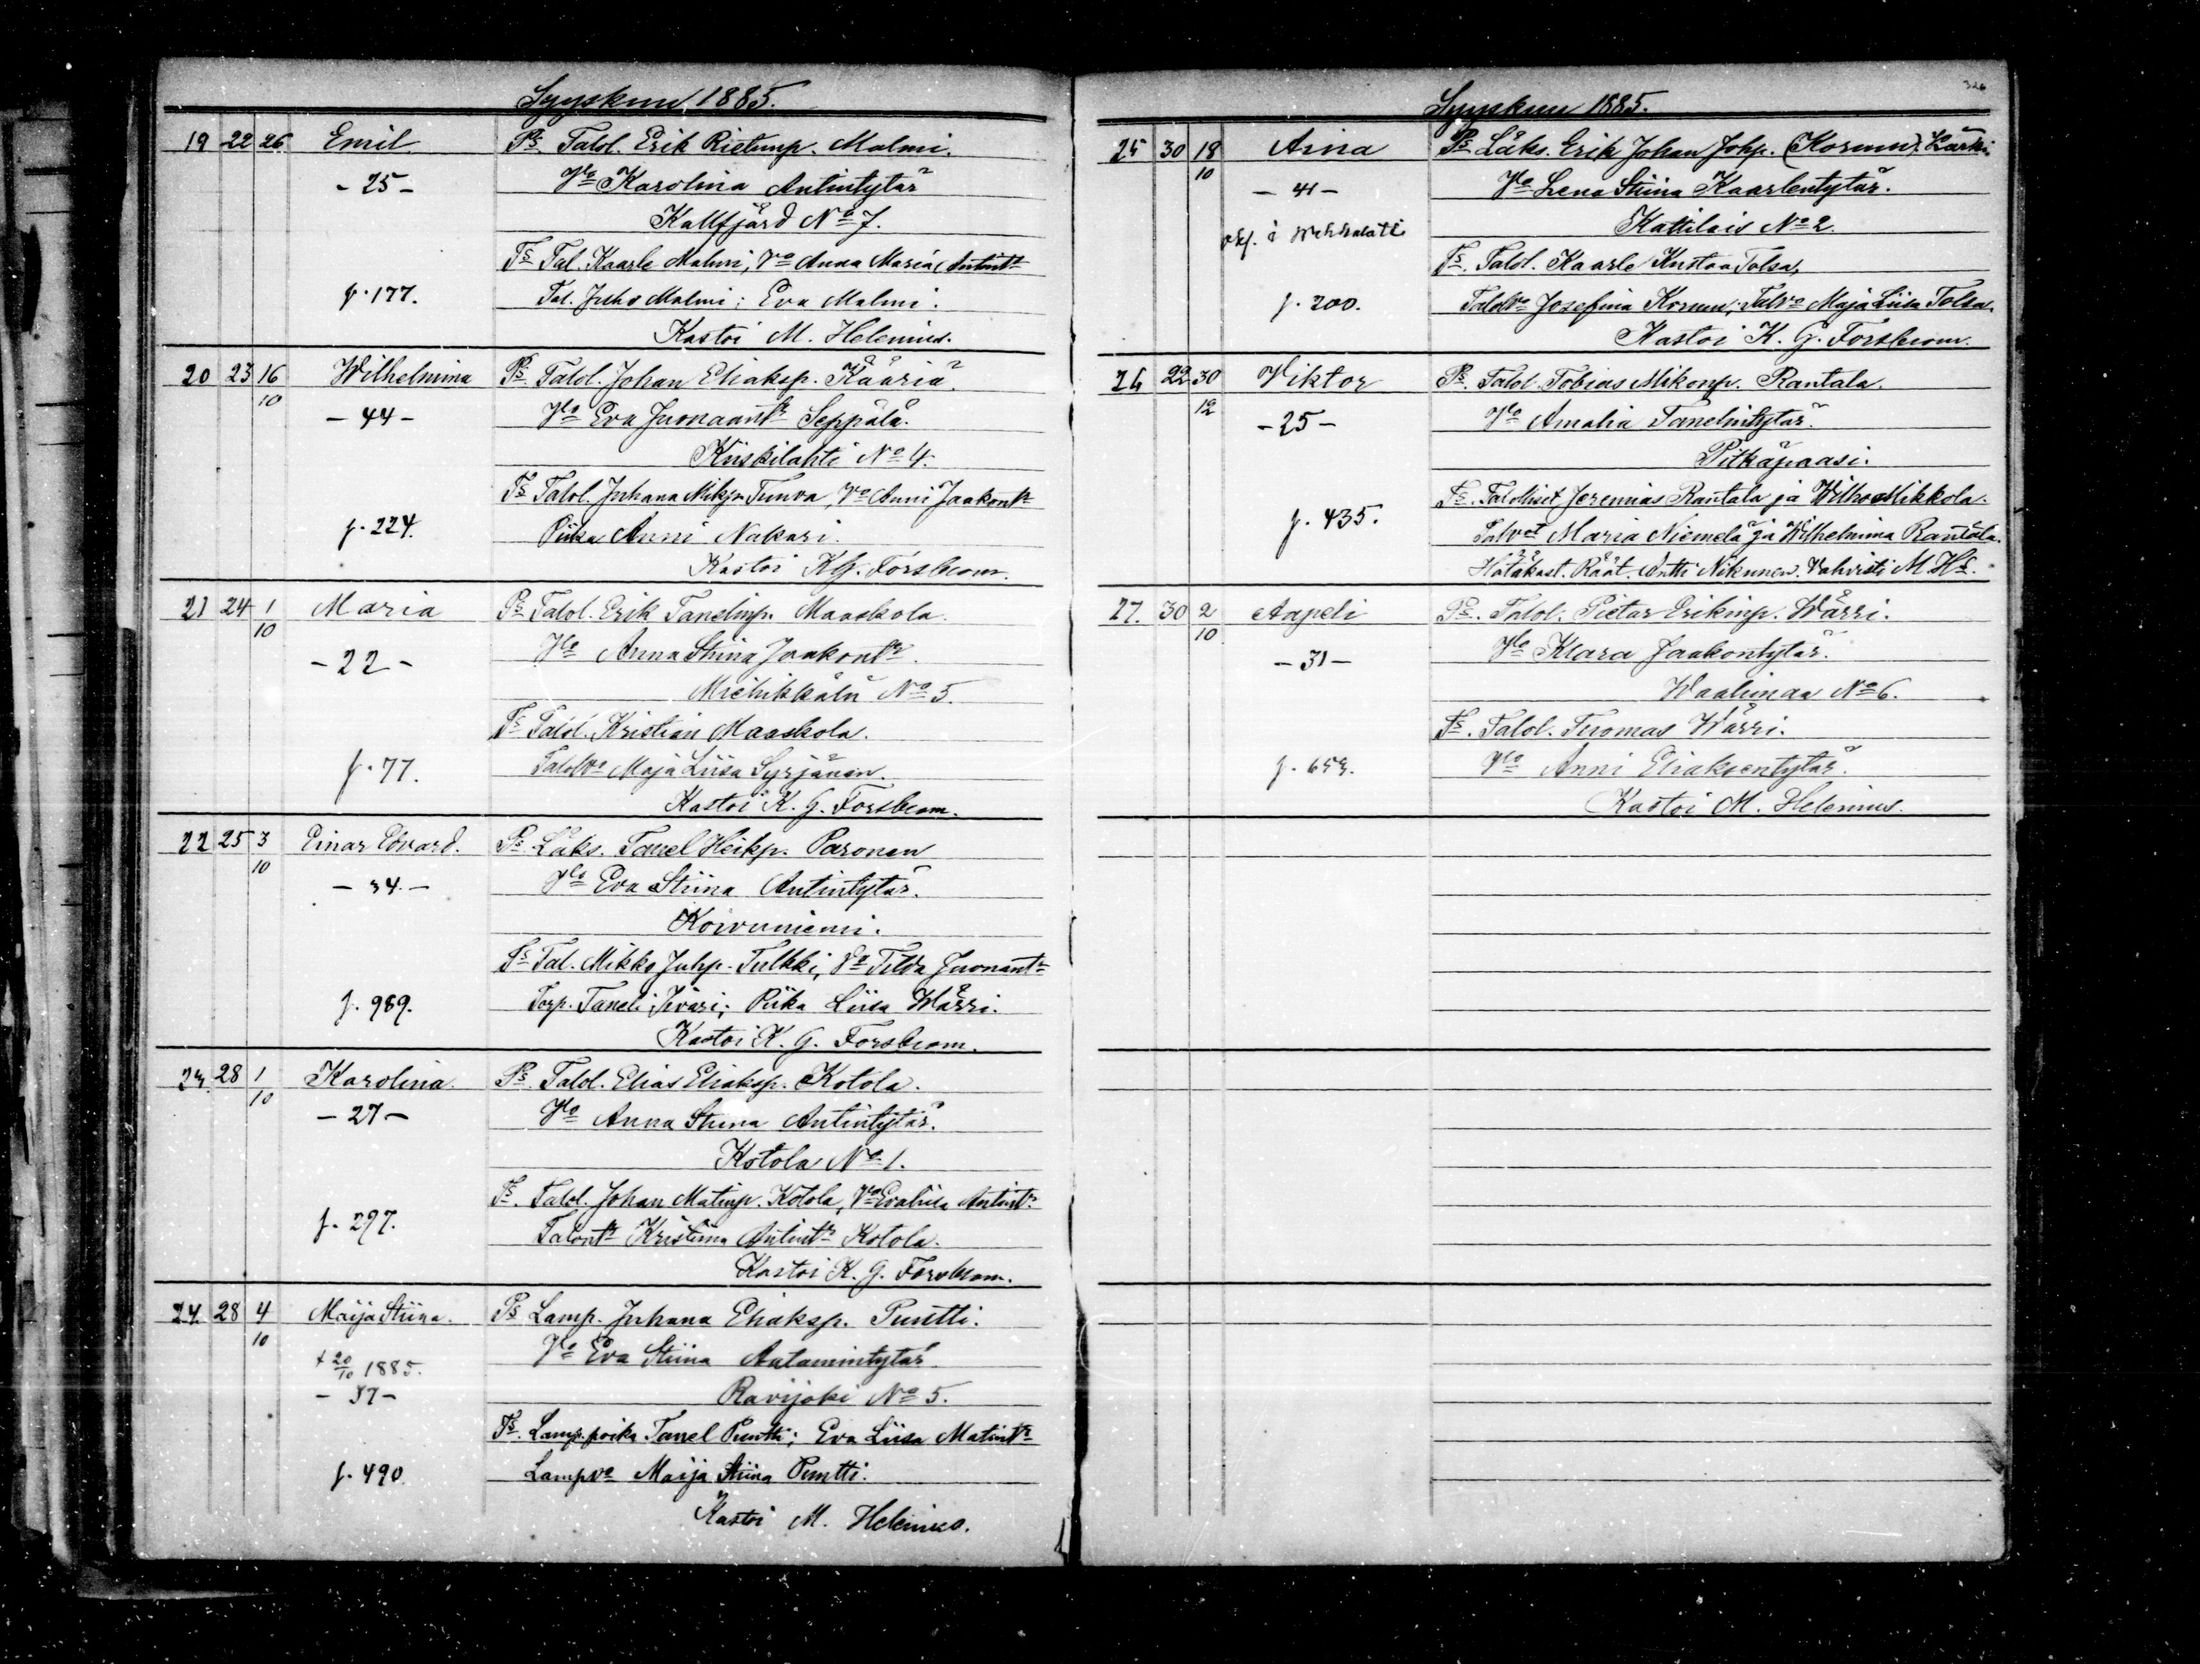 Syyskuu 1885.
19 22 26 Emil Ps. Talol. Erik Ristinp. Malmi.
- 25 - Vo Karolina Antintytär
Kallfjärd No 7.
Ts Tal. Kaarle Malmi, Vo Anna Maria Antintr
f. 177. Tal. Juho Malmi: Eva Malmi.
Kastoi M. Helenius.
20 23 16 Wilhelmina Ps. Talol. Johan Eliaksp. Kääriä.
10
- 44 - Vo Eva Juonaantr Seppälä.
Kiiskilahti No 4.
Ts Talol. Juhana Mikp. Tunva, Vo Anni Jaakontr
f. 224. Piika Anni Nakari.
Kastoi K.G. Forsbom.
21 24 1 Maria Ps Talol. Erik Tanelinp. Maaskola.
10
- 22 - Vo Anna Stiina Jaakontr.
Miehikkälä No 5.
Ts Talol. Kristian Maaskola.
f. 77. Talolvo Maja Liisa Syrjänen.
Kastoi K. G. Forsbom.
22 25 3 Einar Edvard. Ps Läks. Tanel Heikp. Paronen
10
- 34. - Vo Eva Stiina Antintytär.
Koivuniemi.
Ts Tal. Mikko Juhp. Tulkki, Vo Tilda Juonantr
f. 989. Torp. Taneli; Piika Liisa Wärri.
Kastoi K. G. Forsbom.
23. 28 1 Karolina Ps. Talol. Elias Eliaksp. Kotola.
10
- 27 - Vo Anna Stiina Antintytär.
Kotola No 1.
Ts. Talol. Johan Matinp. Kotola, Vo Evaliisa Antintr
f. 297. Talontr Kristiina Antintr Kotola.
Kastoi K. G. Forsbom.
24. 28 4 Maija Stiina. Ps Lamp. Juhana Eliaksp. Puntti.
10
Vo Eva Stiina Aatamintytär.
+ 20/10 1885.
- 37 - Ravijoki No 5.
Ts. Lamp. poika Tanel Puntti; Eva Liisa Matintr
f. 490. Lampvo Maija Stiina Puntti.
Kastoi M. Helenius.
326
Syyskuu 1885.
25 30 18 Aina Ps Läks. Erik Johan Johp. (Koruun) Lärki
10
- 41 - Vo Lena Stiina Kaarlentytär.
Kattilais No 2.
Ts. Talol. Kaarle Kustaa Tolsa,
f. 200. Talolvo Josefina Koruun; Talvo Maja Liisa Tolsa.
Kastoi K. G. Forsbom.
26 22 30 Viktor Ps. Talol. Tobias Mikonp. Rantala.
12
- 25 - Vo Amalia Tanelintytär.
Pitkäpaasi.
Ts. Talolliset Jeremias Rantala ja Wilho Mikkola.
f. 435. Talvot Maria Niemelä ja Wilhelmina Rantala.
Hätäkast. Räät. Antti Nikunen. Vahvisti M Hs.
27. 30 2 Aapeli Ps. Talol. Pietar Erikinp. Wärri.
10
- 31 - Vo Klara Jaakontytär.
Waalimaa No 6.
Ts. Talol. Tuomas Wärri.
f. 653. Vo Anni Eliaksentytär.
Kastoi M. Helenius.